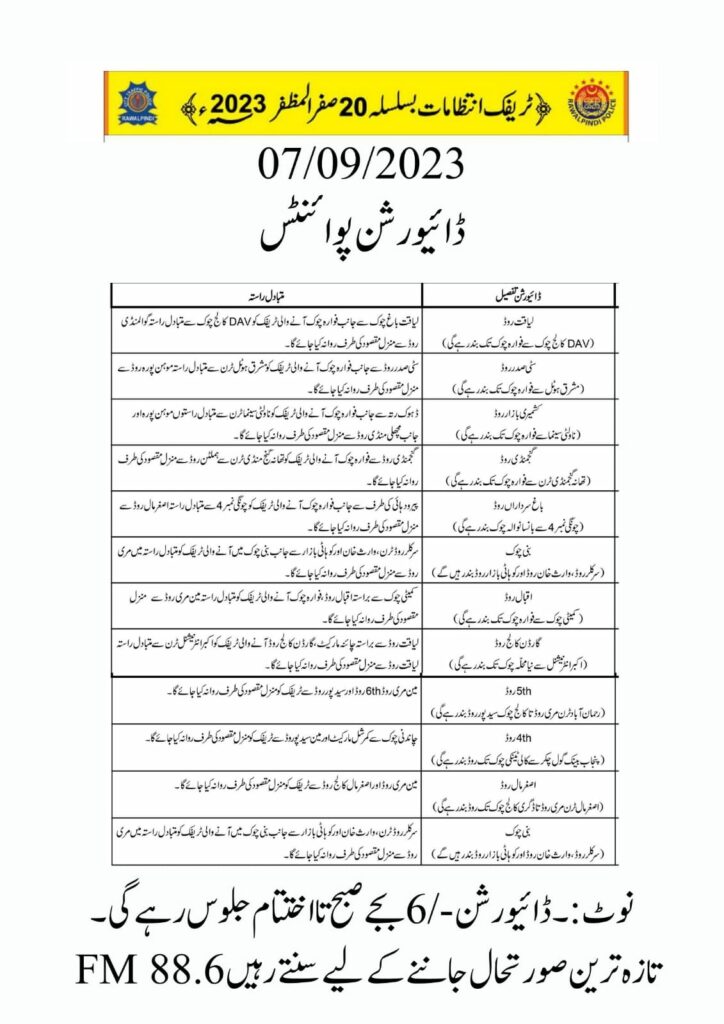 ﴿ ٹریفک انتظامات بسلسلہ 20 صفر المظفر 2023ء ﴾
RAWALPINDI
RAWALPINDI POLICE
07/09/2023
ڈائیورشن پوائنٹس
ڈائیورشن تفصیل
متبادل راستہ
لیاقت روڈ
(DAV کالج چوک سے فوارہ چوک تک بند رہے گی)
لیاقت باغ چوک سے جانب فوارہ چوک آنے والی ٹریفک کو DAV کالج چوک سے متبادل راستہ گوالمنڈی
روڈ سے منزل مقصود کی طرف روانہ کیا جائے گا۔
سٹی صدر روڈ
(مشرق ہوٹل سے فوارہ چوک تک بند رہے گی)
سٹی صدر روڈ سے جانب فوارہ چوک آنے والی ٹریفک کو مشرق ہوٹل ٹرن سے متبادل راستہ موہن پورہ روڈ سے
منزل مقصود کی طرف روانہ کیا جائے گا۔
کشمیری بازار روڈ
(ناولٹی سینما سے فوارہ چوک تک بند رہے گی)
ڈہوک رتہ سے جانب فوارہ چوک آنے والی ٹریفک کو ناولٹی سینما ٹرن سے متبادل راستوں موہن پورہ اور
جانب مچھلی منڈی روڈ سے منزل مقصود کی طرف روانہ کیا جائے گا۔
گنجمنڈی روڈ
(تھانہ گنجمنڈی ٹرن سے فوارہ چوک تک بند رہے گی)
گنجمنڈی روڈ سے فوارہ چوک آنے والی ٹریفک کو تھانہ گنج منڈی ٹرن سے ہملٹن روڈ سے منزل مقصود کی طرف
روانہ کیا جائے گا۔
باغ سرداراں روڈ
(چونگی نمبر 4 سے بانسانوالہ چوک بند رہے گی)
پیرودہائی کی طرف سے جانب فوارہ چوک آنے والی ٹریفک کو چونگی نمبر 4 سے متبادل راستہ اصغر مال روڈ سے
منزل مقصود کی طرف روانہ کیا جائے گا۔
بنی چوک
(سرکلر روڈ، وارث خان روڈ اور کوہاٹی بازار روڈ بند رہیں گے)
سرکلر روڈ ٹرن، وارث خان اور کوہاٹی بازار سے جانب بنی چوک میں آنے والی ٹریفک کو متبادل راستہ میں مری
روڈ سے منزل مقصود کی طرف روانہ کیا جائے گا۔
اقبال روڈ
(کمیٹی چوک سے فوارہ چوک تک بند رہے گی)
کمیٹی چوک سے براستہ اقبال روڈ، فوارہ چوک آنے والی ٹریفک کو متبادل راستہ مین مری روڈ سے منزل
مقصود کی طرف روانہ کیا جائے گا۔
گارڈن کالج روڈ
(اکبر انٹرنیشنل سے نیا محلہ چوک تک بند رہے گی)
لیاقت روڈ سے براستہ چائنہ مارکیٹ، گارڈن کالج روڈ آنے والی ٹریفک کو اکبر انٹرنیشنل ٹرن سے متبادل راستہ
لیاقت روڈ سے منزل مقصود کی طرف روانہ کیا جائے گا۔
5th روڈ
(رحمان آباد ٹرن مری روڈ تا کالج چوک سید پور روڈ بند رہے گی)
مین مری روڈ 6th روڈ اور سید پور روڈ سے ٹریفک کو منزل مقصود کی طرف روانہ کیا جائے گا۔
4th روڈ
(پنجاب بینک گول چکر سے کالی ٹینکی چوک تک روڈ بند رہے گی)
چاندنی چوک سے کمرشل مارکیٹ اور مین سید پور روڈ سے ٹریفک کو منزل مقصود کی طرف روانہ کیا جائے گا۔
اصغر مال روڈ
(اصغر مال ٹرن مری روڈ تا ڈگری کالج چوک تک روڈ بند رہے گی)
مین مری روڈ اور اصغر مال کالج روڈ سے ٹریفک کو منزل مقصود کی طرف روانہ کیا جائے گا۔
بنی چوک
(سرکلر روڈ، وارث خان روڈ اور کوہاٹی بازار روڈ بند رہیں گے)
سرکلر روڈ ٹرن، وارث خان اور کوہاٹی بازار سے جانب بنی چوک میں آنے والی ٹریفک کو متبادل راستہ میں مری
روڈ سے منزل مقصود کی طرف روانہ کیا جائے گا۔
نوٹ:۔ ڈائیورشن -/6 بجے صبح تا اختتام جلوس رہے گی۔
تازہ ترین صورتحال جاننے کے لیے سنتے رہیں FM 88.6